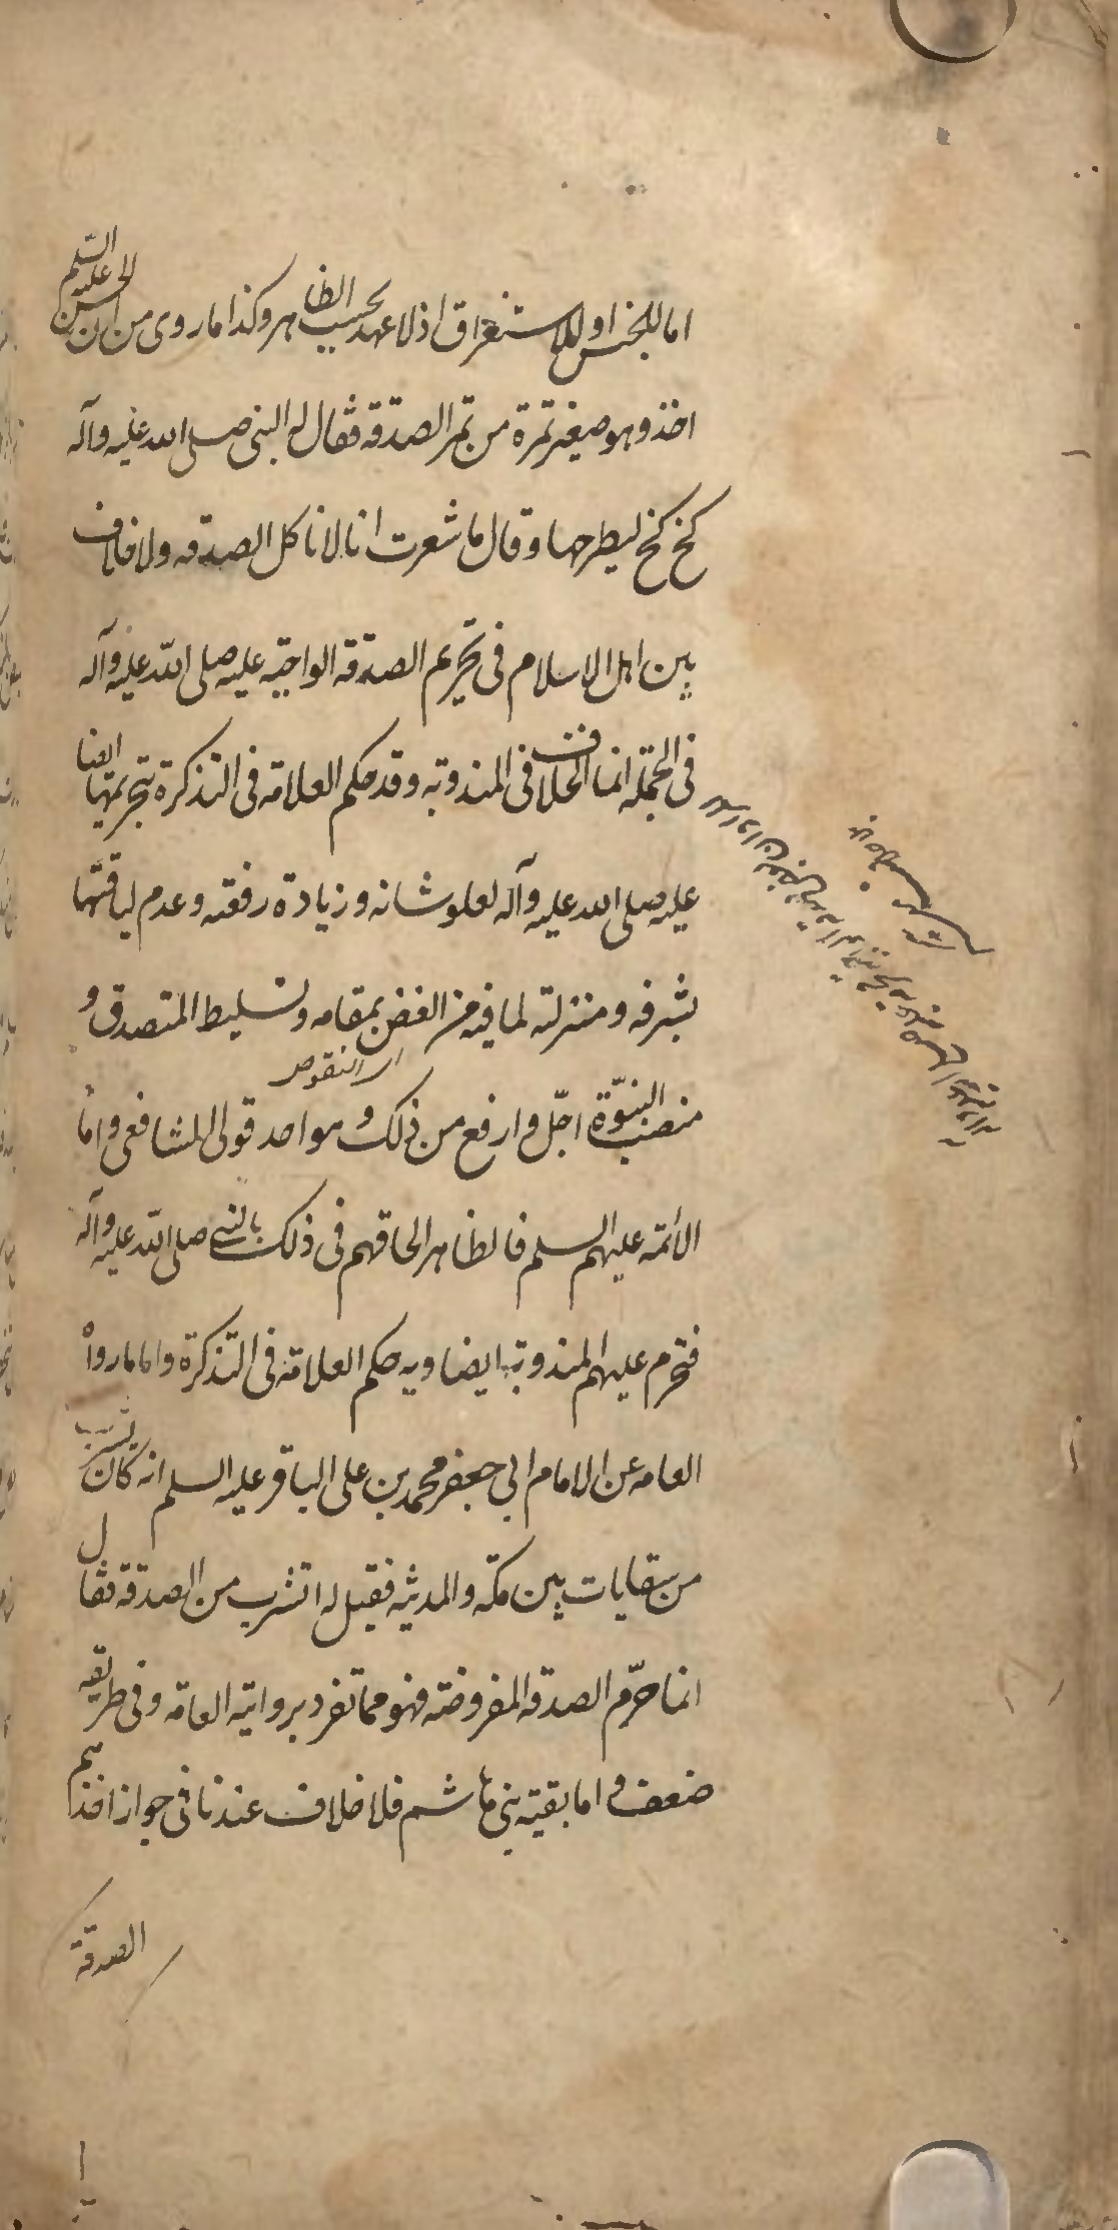 اما للجنس او للاستغراق اذ لا عهد بحسب الظاهر وكذا ما روى من ان الحسن عليه السلم
اخذ وهو صغير تمرة من تمر الصدقة فقال له النبى صلى الله عليه وآله
كخ كخ ليطرحها وقال ما شعرت انا لا ناكل الصدقه ولا خلاف
بين اهل الاسلام فى تحريم الصدقة الواجبة عليه صلى الله عليه وآله
فى الجملة انما الخلاف فى المندوبه وقد حكم العلامة فى التذكرة بتحريمها ايضا
عليه صلى الله عليه وآله لعلو شانه وزيادة رفعته وعدم لياقتها
بشرفه ومنزلته لما فيه من الغض بمقامه وتسليط المتصدق و
اى النقص
منصب النبوّة اجلّ وارفع من ذلك وهو احد قولى الشافعى واما
الائمة عليهم السلم فالظاهر الحاقهم فى ذلك بالنبى صلى الله عليه وآله
فتحرم عليهم المندوبة ايضا وبه حكم العلامة فى التذكرة واما ما رواه
العامه عن الامام ابى جعفر محمد بن على الباقر عليه السلم انه كان يشرب
من سقايات بين مكة والمدينه فقيل له اتشرب من الصدقة فقال
انما حرّم الصدقه المفروضه فهو مما تفرد بروايته العامة وفى طريقه
ضعف واما بقية بنى هاشم فلا خلاف عندنا فى جواز اخذهم
الصدقة